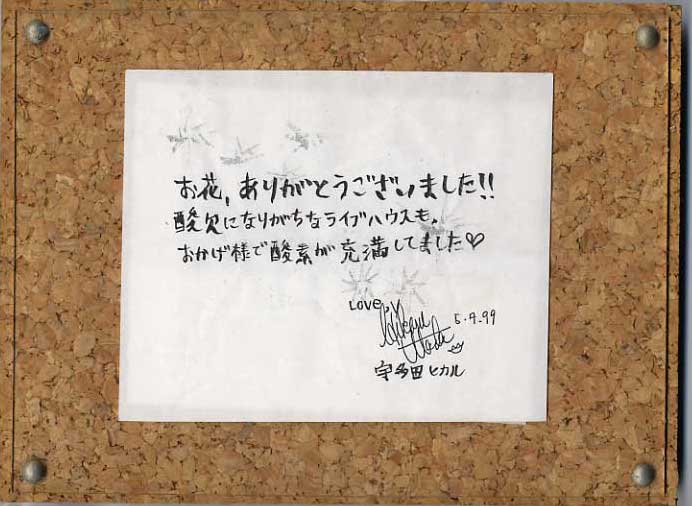 お花、ありがとうございました!!
酸欠になりがちなライブハウスも、
おかげ様で酸素が充満してました♡
LOVE,
Hikaru Utada 5.9.99
宇多田ヒカル